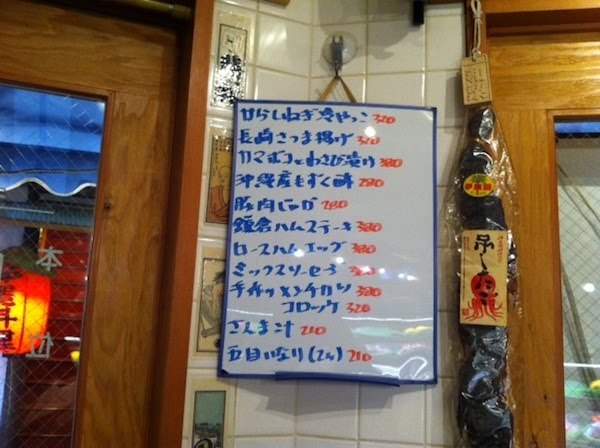 からしねぎ冷やっこ 320
長崎さつま揚げ 320
カマボコとわさび漬け 380
沖縄産もずく酢 280
豚肉にんが 280
鎌倉ハムステーキ 380
ロースハムエッグ 380
ミックスソーセージ
手作りメンチカツ 380
コロッケ 320
さんま汁 210
五目いなり(2ヶ) 210
吊しだこ
本